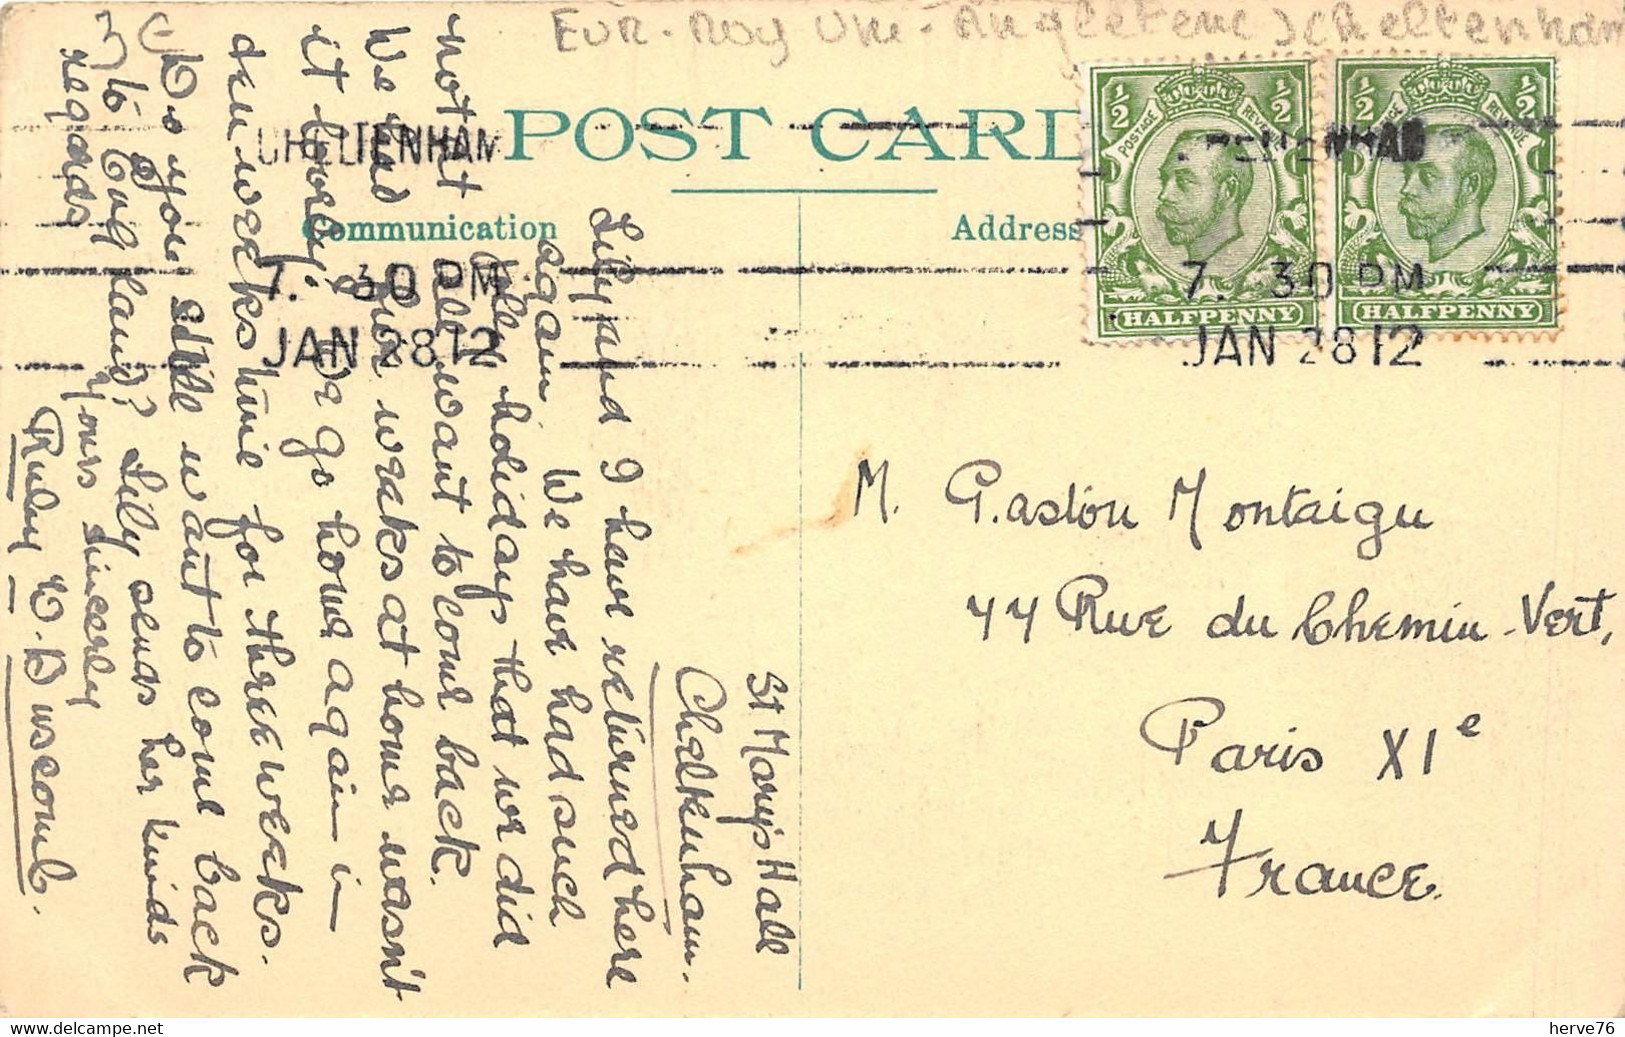 EUR - Roy Uni - Angleterre Cheltenham
POST CARD
Communication
Address
CHELTENHAM
7. 30 PM
JAN 28 12
CHELTENHAM
7. 30 PM
JAN 28 12
½ ½
POSTAGE REVENUE
HALFPENNY
½ ½
POSTAGE REVENUE
HALFPENNY
St Mary's Hall
Cheltenham.
Lily and I have returned here
again We have had such
jolly holidays that we did
not at all want to come back.
We had five weeks at home wasn't
it lovely? We go home again in
ten weeks time for three weeks.
Do you still want to come back
to England? Lily sends her kinds
regards
Yours sincerely
Ruby E. Duscomb.
M. Gaston Montaigu
77 Rue du Chemin-Vert,
Paris XIe
France.
herve76